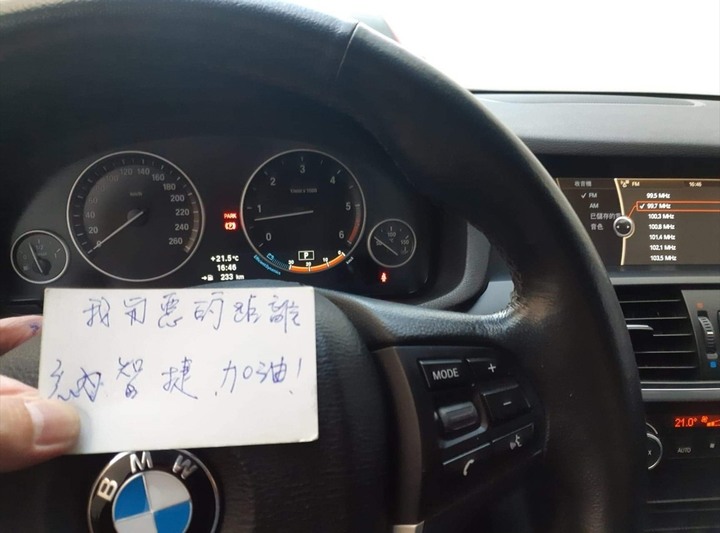 我与惡的距離
智捷加油!
BMW
MODE
+
-
20 40 60 80 100 120 140 160 180 200 220 240 260
km/h
PARK
+21.5°C
16:46
233 km
0 1 2 3 4 5 6
1/min x 1000
P
EfficientDynamics
收音機 FM 16:46
FM
AM
已儲存的
音色
99.5 MHz
99.7 MHz
100.3 MHz
100.8 MHz
101.4 MHz
102.1 MHz
103.5 MHz
21.0°
AUTO